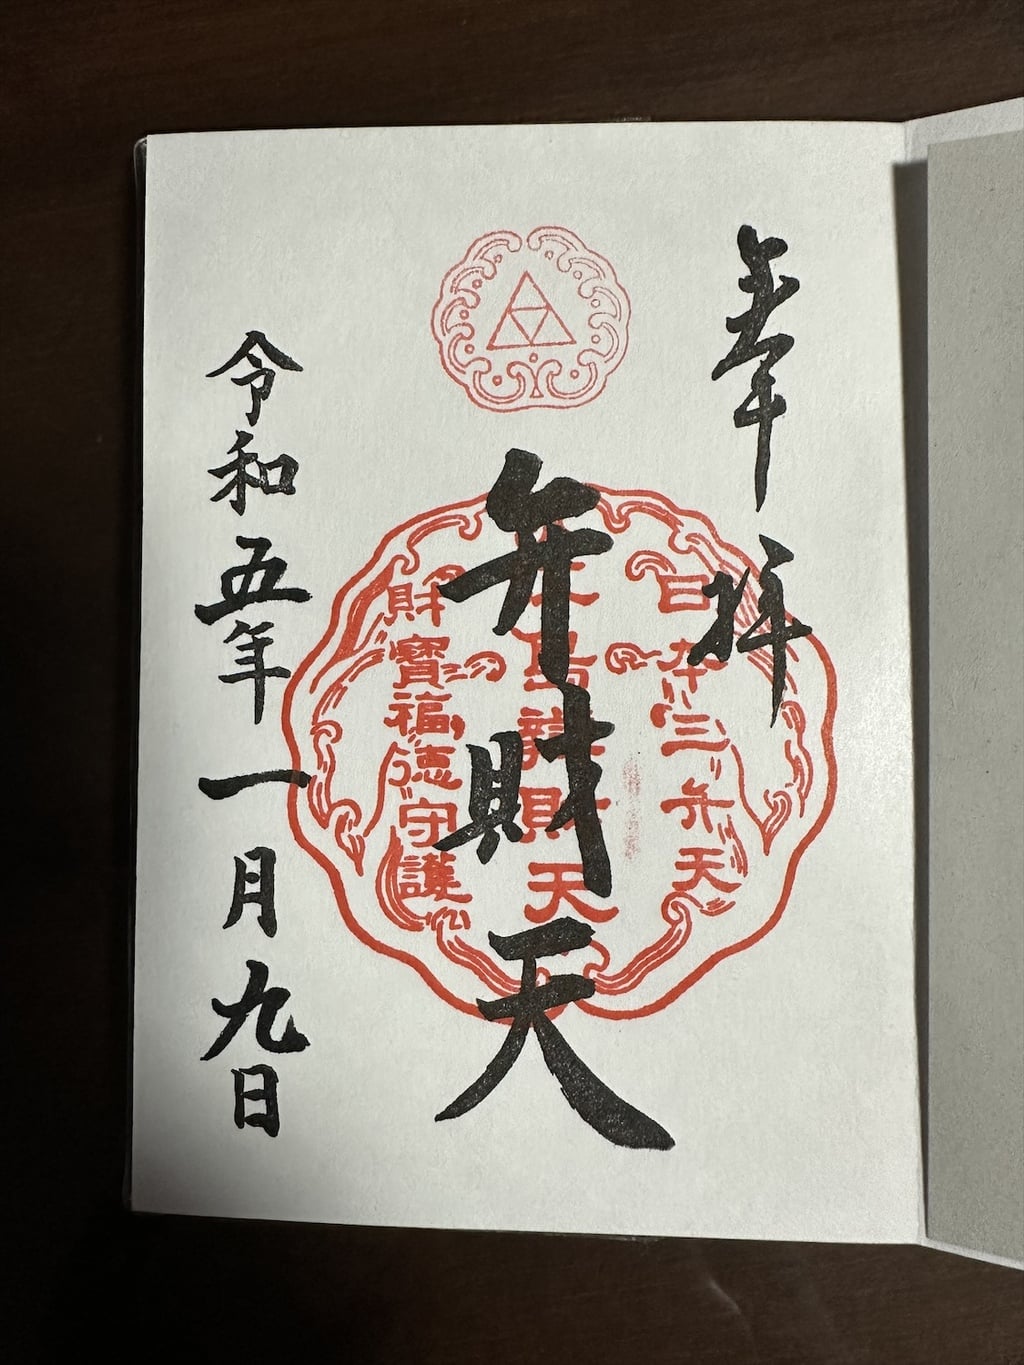 奉拝
日本三弁天
弁財天
江島辨財天
財寶福徳守護
令和五年一月九日